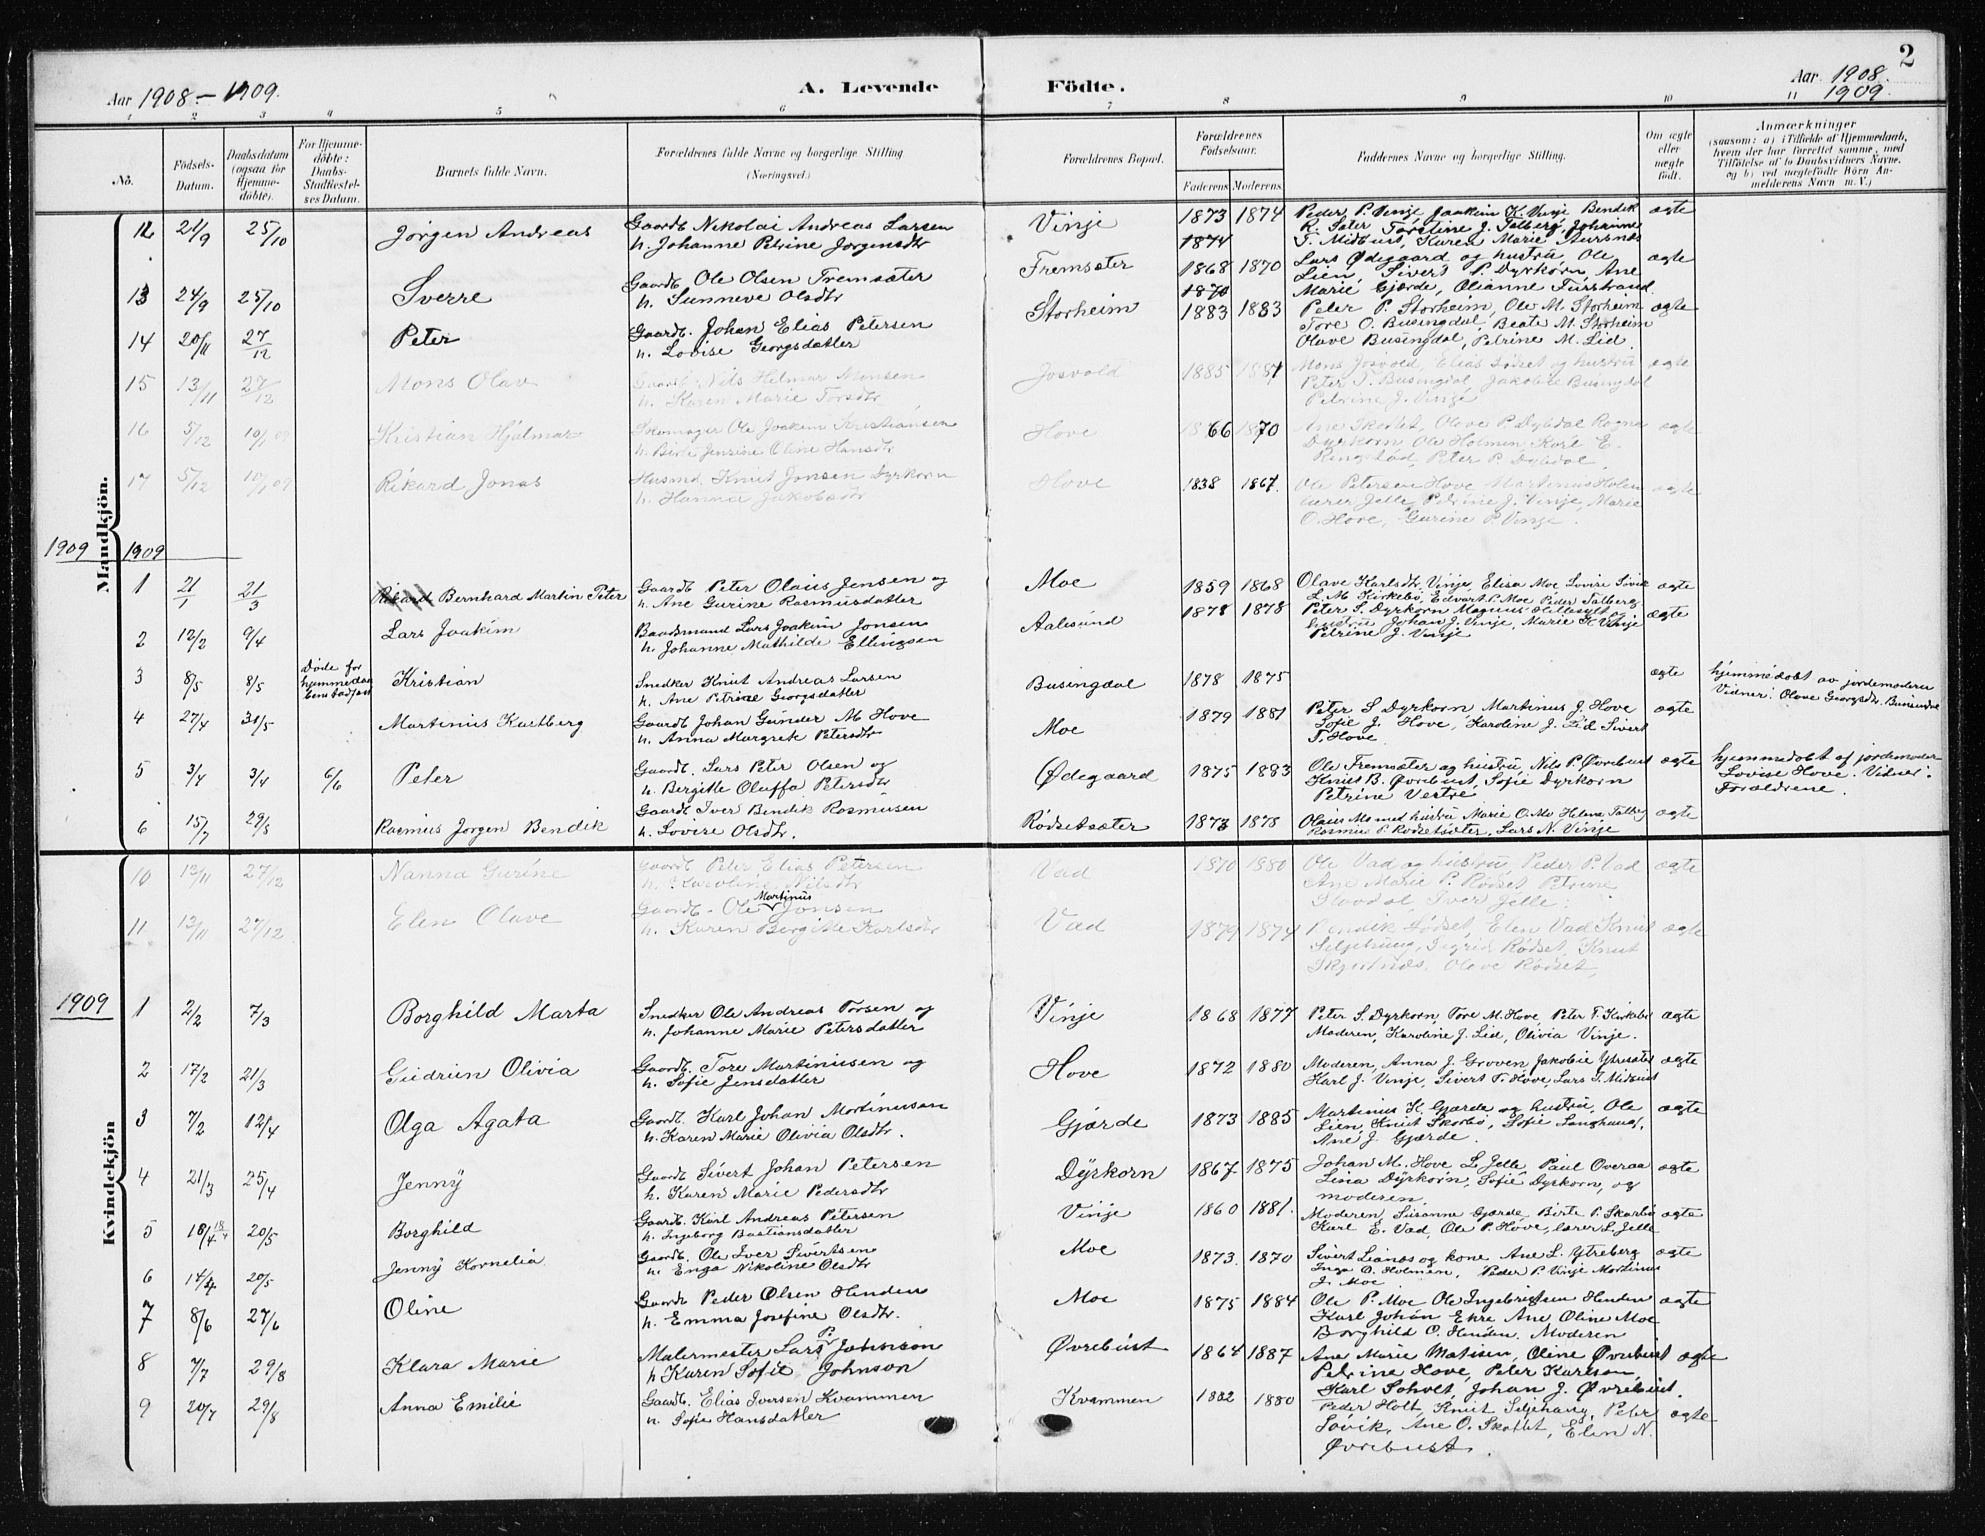 2
Aar 1908 – 1909.
A. Levende Födte.
Aar 1908.
1909.
1 2 3 4 5 6 7 8 9 10 11
No.
Födsels-Datum.
Daabsdatum (ogsaa for Hjemme-döbte).
For Hjemme-döbte: Daabs-Stadfæstel-ses Datum.
Barnets fulde Navn.
Forældrenes fulde Navne og borgerlige Stilling (Næringsvei.)
Forældrenes Bopæl.
Forældrenes Födselsaar.
Faderens Moderens
Faddernes Navne og borgerlige Stilling.
Om ægte eller uægte födt.
Anmærkninger
(saasom: a) i Tilfælde af Hjemmedaab, hvem der har forrettet samme, med Tilföielse af to Daabsvidners Navne, og b) ved uægtefödte Börn Anmelderens Navn m. V.)
Mandkjön.
12 21/9 25/10 Jørgen Andreas Gaardb. Nikolai Andreas Larsen Vinje 1873 1874 Peder P. Vinje, Joakim K. Vinje Bendik ægte
h. Johanne Petrine Jørgensdtr 1874 R. Sæter Torstine J. Talberg, Johanne
T. Midbust, Karen Marie Aursnes
13 24/9 25/10 Sverre Gaardb. Ole Olsen Fremsæter Fremsæter 1868 1870 Lars Ødegaard og hustru, Ole ægte
h. Sunneve Olsdtr 1870 Lien, Sivert P. Dyrkorn, Ane
Marie Gjærde, Olianne Furstrand
14 20/11 27/12 Peter Gaardb. Johan Elias Petersen Storheim 1883 1883 Peter P. Storheim, Ole M. Storheim ægte
h. Lovise Georgsdatter Tore O. Busingdal, Beate M. Storheim
Olave Busingdal, Petrine M. Lid.
15 13/11 27/12 Mons Olav Gaardb. Nils Helmar Monsen Josvold 1885 1881 Mons Josvold, Elias Rødset og hustru ægte
h. Karen Marie Torsdtr Peter T. Busingdal, Jakobine Busingdal
Petrine J. Vinje
16 5/12 10/1 09 Kristian Hjalmar Skomager Ole Joakim Kristiansen Hove 1866 1870 Ane Skotet, Olave P. Dybdal Ragna ægte
h. Birte Jensine Oline Hansdtr Dyrkorn Ole Holmen, Karl E.
Ringstad, Peter P. Dybdal.
17 5/12 10/1 09 Rikard Jonas Husmd. Knut Jonsen Dyrkorn Hove 1838 1867. Ole Petersen Hove Martinus Holen ægte
h. Hanna Jakobsdtr lærer Jelle, Petrine J. Vinje, Marie
O. Hove, Gurine P. Vinje.
1909 1909
1 21/1 21/3 Rikard Bernhard Martin Peter Gaardb. Peter Olaus Jensen og Moe 1859 1868 Olave Karlsdtr. Vinje, Elisa Moe Lovise ægte
h. Ane Gurine Rasmusdatter L. M. Kirkebø, Edvart P. Moe Peder Talberg
2 12/2 9/4 Lars Joakim Baadsmand Lars Joakim Jonsen Aalesund 1878 1878 Peter S. Dyrkorn Magnus og ægte
h. Johanne Mathilde Ellingsen hustru Johan J. Vinje, Marie K. Vinje
Petrine J. Vinje
3 8/5 8/5 Døde før Kristian Snedker Knut Andreas Larsen Busingdal 1878 1875 ægte hjemmedøbt av jordemoderen
h. Ane Petrine Georgsdatter Vidner: Olave Georgsdtr. Busingdal
4 27/4 31/5 Martinus Kartberg Gaardb. Johan Gunder M. Hove Moe 1879 1881 Peter S. Dyrkorn Martinus J. Hove ægte
h. Anna Margrete Petersdtr Sofie J. Hove, Karoline J. Lid Sivert
T. Hove
5 3/4 3/4 6/6 Peter Gaardb. Lars Peter Olsen og Ødegaard 1875 1883 Ole Fremsæter og hustru Nils P. Øvrebust ægte hjemmedøbt af jordemoder
h. Bergitte Oluffa Petersdtr Knut B. Øvrebust, Sofie Dyrkorn Lovise Hove. Vidner:
Petrine Vestre Forældrene.
6 15/7 29/8 Rasmus Jørgen Bendik Gaardb. Iver Bendik Rasmusen Rødsetsæter 1873 1878 Olaus Mo med hustru Marie O. Mo Helene Talberg ægte
h. Lovise Olsdtr. Rasmus P. Rødsetsæter, Lars N. Vinje
Kvindekjön
10 13/11 27/12 Nanna Gurine Gaardb. Peter Elias Petersen Vad 1870 1880 Ole Vad og hustru, Peder P. Vad ægte
h. Karoline Nilsdtr Ane Marie P. Rødset Petrine
Iver Jelle.
11 13/11 27/12 Elen Olave Gaardb. Ole Martinus Jonsen Vad 1879 1874 Bendik Rødset, Elen Vad Knut ægte
h. Karen Bergitte Karlsdtr Seljehaug, Ingrid Rødset, Knut
Skjortnæs, Olave Rødset,
1909
1 2/2 7/3 Borghild Marta Snedker Ole Andreas Torsen og Vinje 1868 1877 Peter S. Dyrkorn, Tore M. Hove Peter T. Kirkebø ægte
h. Johanne Marie Petersdatter Moderen, Karoline J. Lid, Olivia Vinje.
2 17/2 21/3 Gudrun Olivia Gaardb. Tore Martinusen og Hove 1872 1880 Moderen, Anna J. Groven, Jakobie Ytresæter ægte
h. Sofie Jensdatter Karl J. Vinje, Sivert T. Hove, Lars T. Midbust
3 7/2 12/4 Olga Agata Gaardb. Karl Johan Martinusen Gjærde 1873 1885 Martinus K. Gjærde og hustru, Ole ægte
h. Karen Marie Olivia Olsdtr. Lien, Knut Skorbø, Sofie Langhaug,
Ane J. Gjærde.
4 21/3 25/4 Jenny Gaardb. Sivert Johan Petersen Dyrkorn 1867 1875 Johan M. Hove L. Jelle, Paul Overaa ægte
h. Karen Marie Pedersdtr Lina Dyrkorn, Sofie Dyrkorn, og
moderen.
5 18/4 18/4 20/5 Borghild Gaardb. Karl Andreas Petersen Vinje 1860 1881. Moderen, Susanne Gjærde Birte P. Skorbø ægte
h. Ingeborg Bastiansdatter Karl E. Vad, Ole P. Hove, lærer L. Jelle
6 14/4 20/5 Jenny Kornelia Gaardb. Ole Iver Sivertsen Moe 1873 1870 Sivert Lianæs og kone Ane L. Ytreberg ægte
h. Enga Nikoline Olsdtr Inga O. Holmen, Peder P. Vinje Martinus
J. Moe
7 8/6 27/6 Oline Gaardb. Peder Olsen Henden Moe 1875 1884 Ole P. Moe Ole Ingebrigtsen Henden ægte
h. Emma Josefine Olsdtr. Karl Johan Ekre Ane Oline Moe
Borghild O. Henden. Moderen
8 7/7 29/8 Klara Marie Malermester Lars P. Johnson Øvrebust 1864 1887 Ane Marie Matisen, Oline Øvrebust ægte
h Karen Sofie Johnson Petrine Hove, Peter Karlson,
Karl Soholt, Johan J. Øvrebust.
9 20/7 29/8 Anna Emilie Gaardb. Elias Iversen Kvammen Kvammen 1882 1880 Peder Holt, Knut Seljehaug, Peter ægte
h. Sofie Hansdatter Søvik, Ane O. Skottet, Elen N.
Øvrebust.